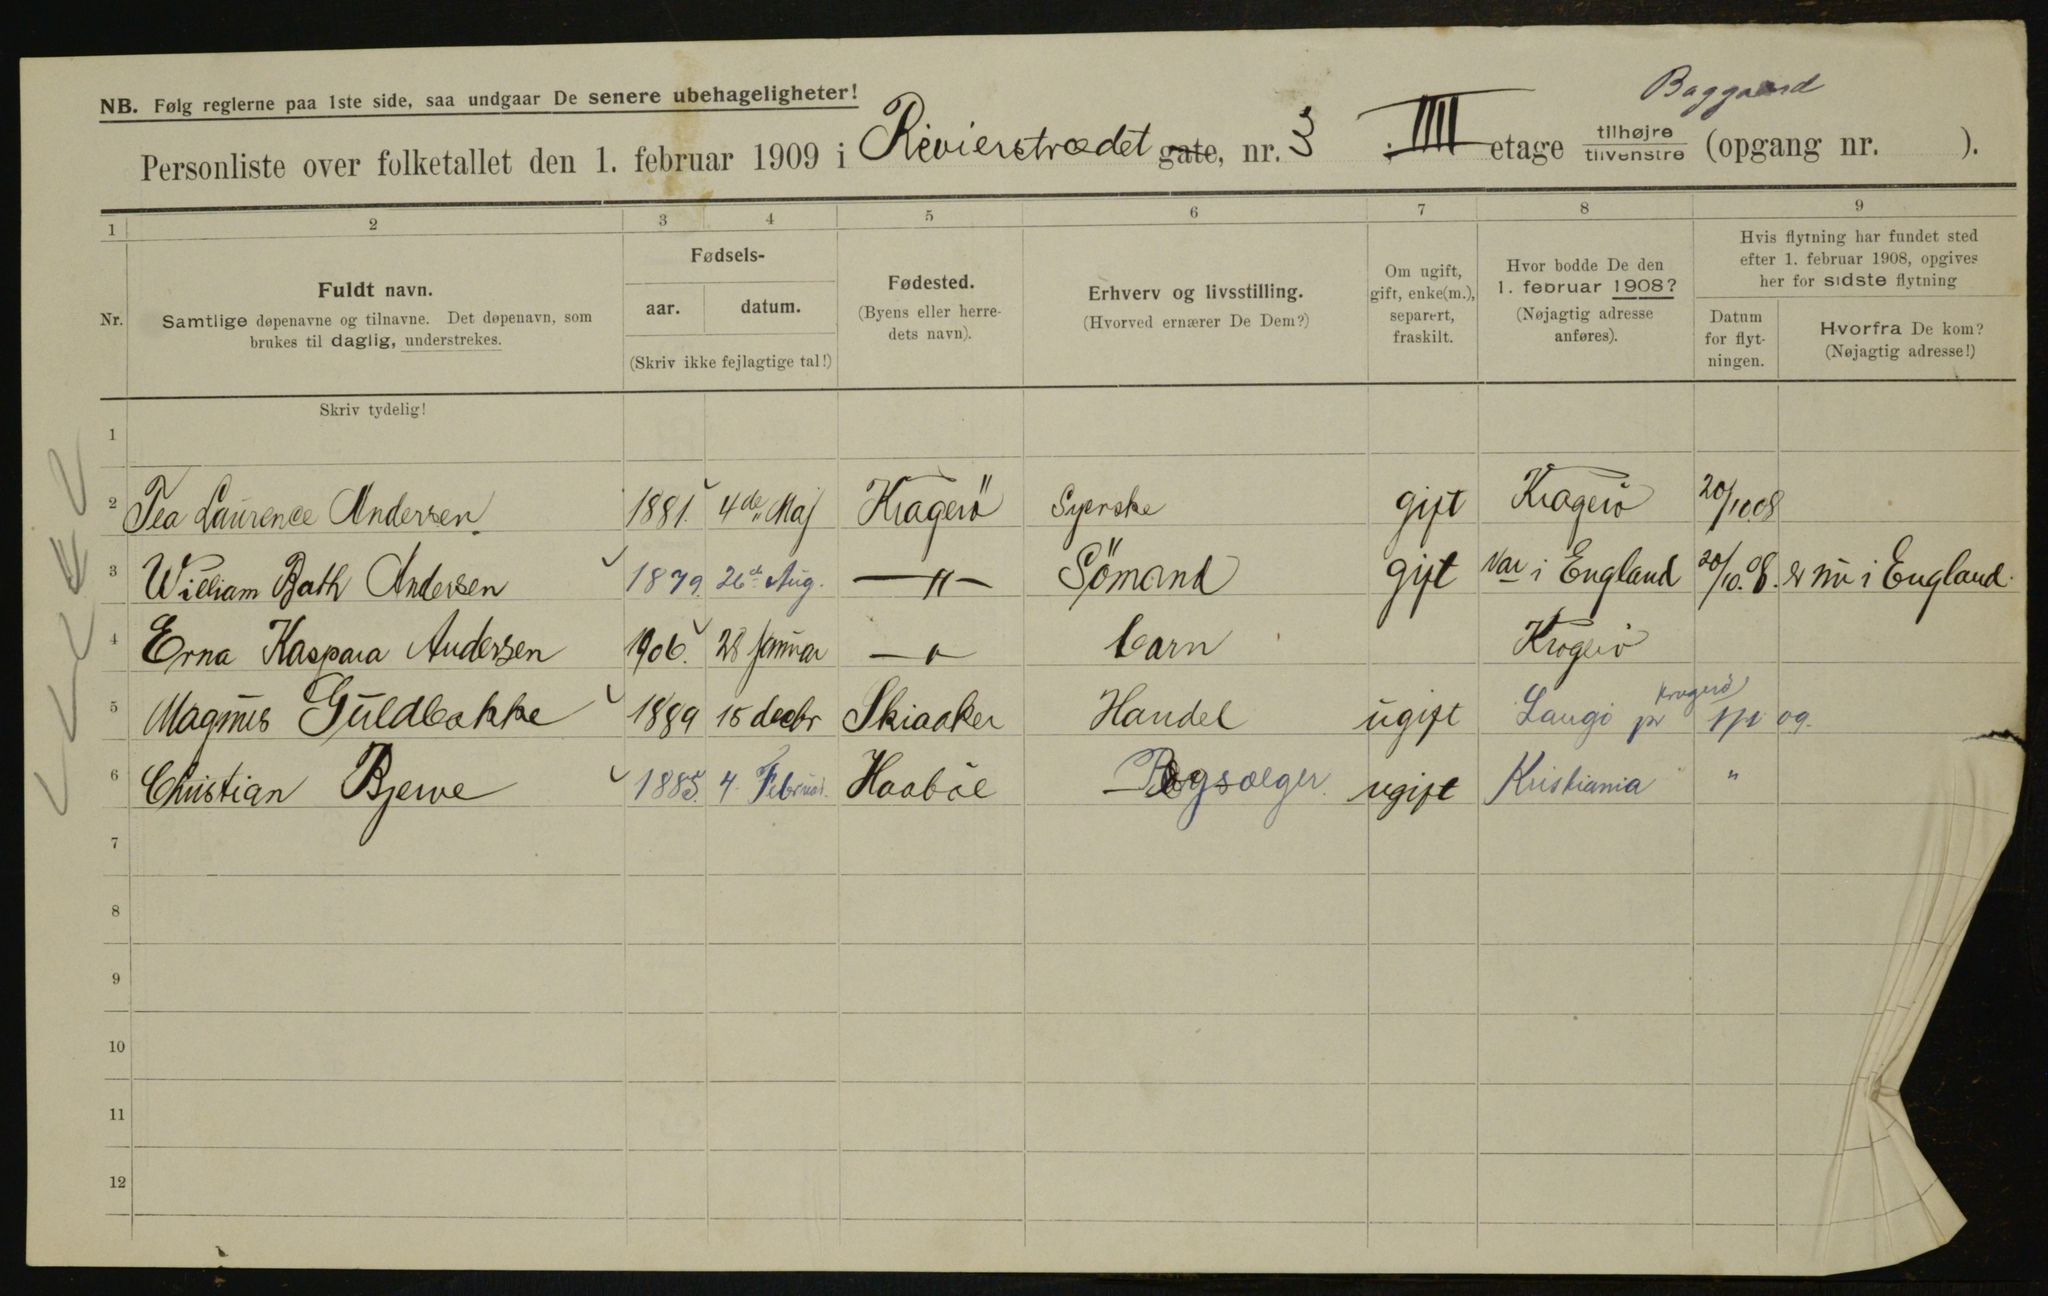 Baggaard
NB. Følg reglerne paa 1ste side, saa undgaar De senere ubehageligheter!
Personliste over folketallet den 1. februar 1909 i Revierstrædet gate, nr. 3 . IIII etage tilhøjre tilvenstre (opgang nr. ).
1 2 3 4 5 6 7 8 9
Nr.
Fuldt navn.
Samtlige døpenavne og tilnavne. Det døpenavn, som
brukes til daglig, understrekes.
Fødsels-
aar. datum.
(Skriv ikke fejlagtige tal!)
Fødested.
(Byens eller herre-
dets navn).
Erhverv og livsstilling.
(Hvorved ernærer De Dem?)
Om ugift,
gift, enke(m.),
separert,
fraskilt.
Hvor bodde De den
1. februar 1908?
(Nøjagtig adresse
anføres).
Hvis flytning har fundet sted
efter 1. februar 1908, opgives
her for sidste flytning
Datum
for flyt-
ningen.
Hvorfra De kom?
(Nøjagtig adresse!)
Skriv tydelig!
1
2 Tea Laurence Andersen 1881. 4de Maj Kragerö Syerske gift Kragerö 20/10 08
3 William Bath Andersen 1879. 26de Aug. — " — Sömand gift var i England 20/10. 08. er nu i England.
4 Erna Kaspara Andersen 1906. 28 Januar — " barn Kragerö
5 Magnus Guldbakke 1889 15 decbr Skiaaker Handel ugift Langö pr Kragerö 1/1 09.
6 Christian Bjerve 1885. 4. Februar. Haaböl Bogsælger. ugift Kristiania "
7
8
9
10
11
12